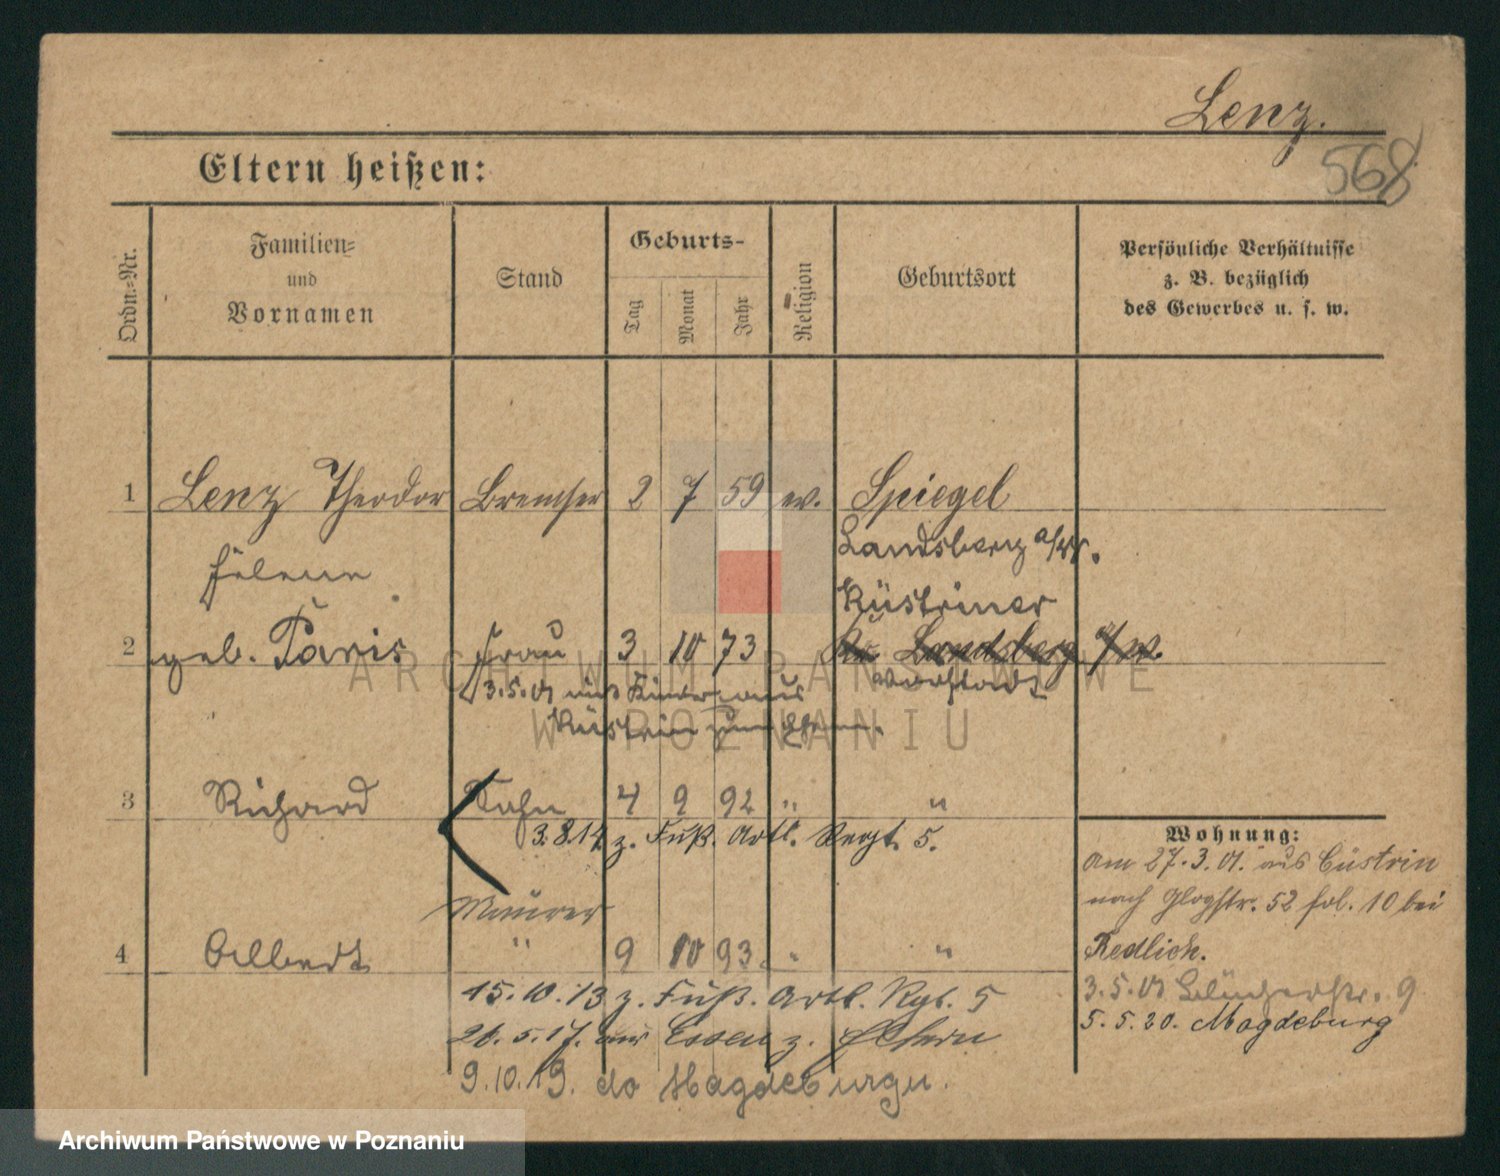 Lenz.
568
Eltern heißen:
Ordn.-Nr.
Familien-
und
Vornamen
Stand
Geburts-
Tag
Monat
Jahr
Religion
Geburtsort
Persönliche Verhältnisse
z. B. bezüglich
des Gewerbes u. s. w.
1 Lenz Theodor Bremser 2 7 59 ev. Spiegel
Landsberg a/W.
Helene
Küstriner
2 geb. Paris Frau 3 10 73 Landsberg a/W.
Vorstadt
3.5.01 mit Kinder aus
Küstrin zum
3 Richard Sohn 4 9 92 " "
3.8.14 z. Fuß. Artl. Regt. 5.
Maurer
4 Albert " 9 10 93 " "
15.10.13 z. Fuß. Artl. Rgt. 5
26.5.17. aus Essen z. Eltern
9.10.19. do Magdeburgu.
Wohnung:
am 27.3.01. aus Cüstrin
nach Glogstr. 52 fol. 10 bei
Redlich.
3.5.01 Blücherstr. 9
5.5.20. Magdeburg
ARCHIWUM PAŃSTWOWE
W POZNANIU
Archiwum Państwowe w Poznaniu